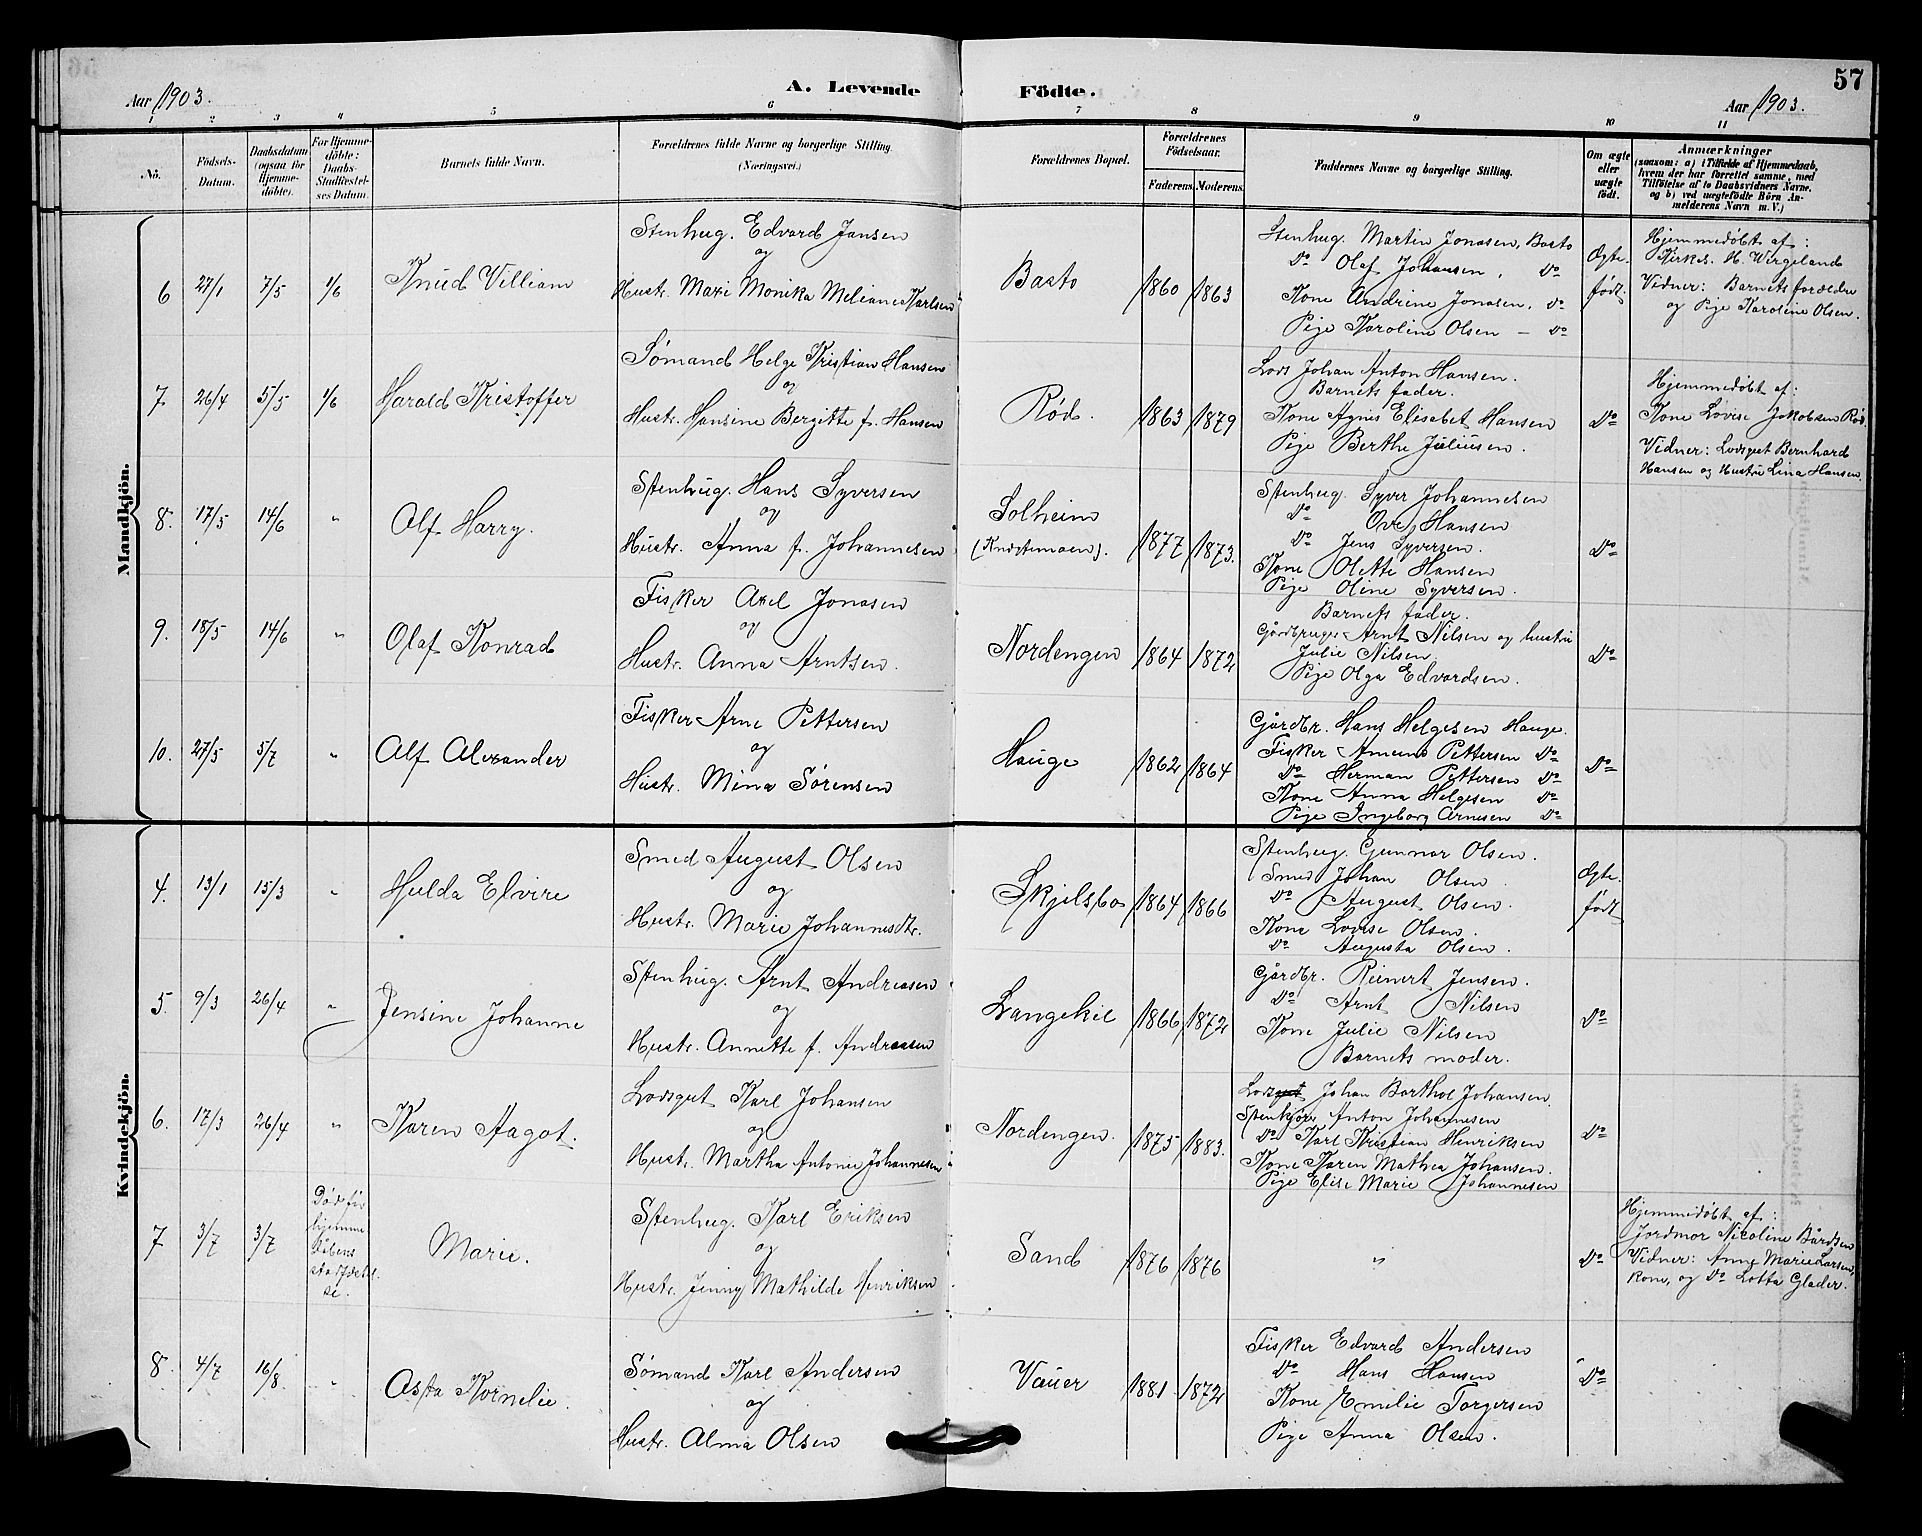 57
Aar 1903.
A. Levende Födte.
Aar 1903.
1 2 3 4 5 6 7 8 9 10 11
No.
Födsels-Datum.
Daabsdatum (ogsaa for Hjemme-döbte).
For Hjemme-döbte: Daabs-Stadfæstel-ses Datum.
Barnets fulde Navn.
Forældrenes fulde Navne og borgerlige Stilling. (Næringsvei.)
Forældrenes Bopæl.
Forældrenes Födselsaar.
Faderens. Moderens.
Faddernes Navne og borgerlige Stilling.
Om ægte eller uægte født.
Anmærkninger
(saasom: a) i Tilfælde af Hjemmedaab,
hvem der har forrettet samme, med
Tilföielse af to Daabsvidners Navne,
og b) ved uægtefödte Börn An-
melderens Navn m. V.)
Mandkjön.
6 27/1 7/5 1/6 Knud Villiam
Stenhug. Edvard Jansen
og
Hustr. Maxi Monika Meliane Karlsen
Basto 1860 1863
Stenhug. Martin Jonasen, Basto
Do Olaf Johansen, Do
Kone Andrine Jonasen, Do
Pige Karoline Olsen — Do
Ægte født.
Hjemmedøbt af:
Kirkes. H. Wergeland
Vidner: Barnets forældre
og Pige Karoline Olsen.
7. 26/4 5/5 1/6 Harald Kristoffer
Sømand Helge Kristian Hansen
og
Hustr. Hansine Bergitte f. Hansen
Rød. 1863 1879
Lods Johan Anton Hansen.
Barnets fader.
Kone Agnes Elisabet Hansen
Pige Berthe Juliusen.
Do
Hjemmedøbt af:
Kone Lovise Jakobsen Rød.
Vidner: Lodsgut Bernhard
Hansen og Hustru Lina Hansen.
8. 17/5 14/6 " Alf Harry.
Stenhug. Hans Syversen
og
Hustr. Anna f. Johannesen
Solheim
1877 1873.
Stenhug. Syver Johannesen
Do Ove Hansen
Do Jens Syversen.
Kone Olette Hansen
Pige Oline Syversen.
Do
9. 18/5 14/6 " Olaf Konrad
Fisker Axel Jonasen
og
Hustr. Anna Arntsen.
Nordengen 1864 1872
Barnets fader.
Gårdbruger Arnt Nilsen og hustru
Julie Nilsen.
Pige Olga Edvardsen.
Do
10. 27/5 5/7 " Alf Alexander
Fisker Arne Pettersen
og
Hustr. Mina Sørensen
Hauge 1862 1864
Gårdbr. Hans Helgesen Hauge.
Fisker Amund Pettersen Do
Do Herman Pettersen Do
Kone Anna Helgesen Do
Pige Ingeborg Arnesen Do
Do
Kvindekjön.
4. 13/1 15/3 " Hulda Elvire
Smed August Olsen
og
Hustr. Marie Johannesdtr.
Skjelsbo 1864 1866
Stenhug. Gunnar Olsen.
Smed Johan Olsen
Do August Olsen.
Kone Lovise Olsen.
Do Augusta Olsen.
Ægte født
5. 9/3 26/4 " Jensine Johanne
Stenhug. Arnt Andreasen
og
Hustr. Annette f. Andreasen
Langekil 1866 1872
Gårdbr. Reinert Jensen.
Do Arnt Nilsen
Kone Julie Nilsen
Barnets moder.
Do
6. 17/3 26/4 " Karen Aagot.
Lodsgut Karl Johansen
og
Hustr. Martha Antonie Johannesen
Nordengen. 1875 1883.
Lodsgut Johan Barthol Johansen.
Anton Johannesen
Do Karl Kristian Henriksen
Kone Karen Mathea Johansen.
Pige Elise Marie Johannesen
Do
7 3/7 3/7 Død før
hjemme
dåbens
stadfæstel
se.
Marie.
Stenhug. Karl Eriksen
og
Hustr. Jenny Mathilde Henriksen
Sand 1876 1876
"
Do
Hjemmedøbt af:
Jordmor Nicoline Bårdsen
Vidner: Anne Marie Larsen,
kone, og Do Lotta Glader.
8. 4/7 16/8 " Asta Kornelie.
Sømand Karl Andersen
og
Hustr. Alma Olsen
Vauer 1881 1872
Fisker Edvard Andersen
Do Hans Hansen
Kone Emilie Torgersen
Pige Anna Olsen.
Do